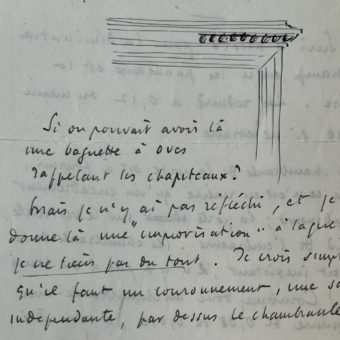 Si on pouvait avoir là
une baguette à oves
rappelant les chapiteaux?
Mais je n'y ai pas réfléchi, et je
donne là une "improvisation" à laque
je ne tiens pas du tout. Je crois simp
qu'il faut un couronnement, une
indépendante, par dessus le chambranle